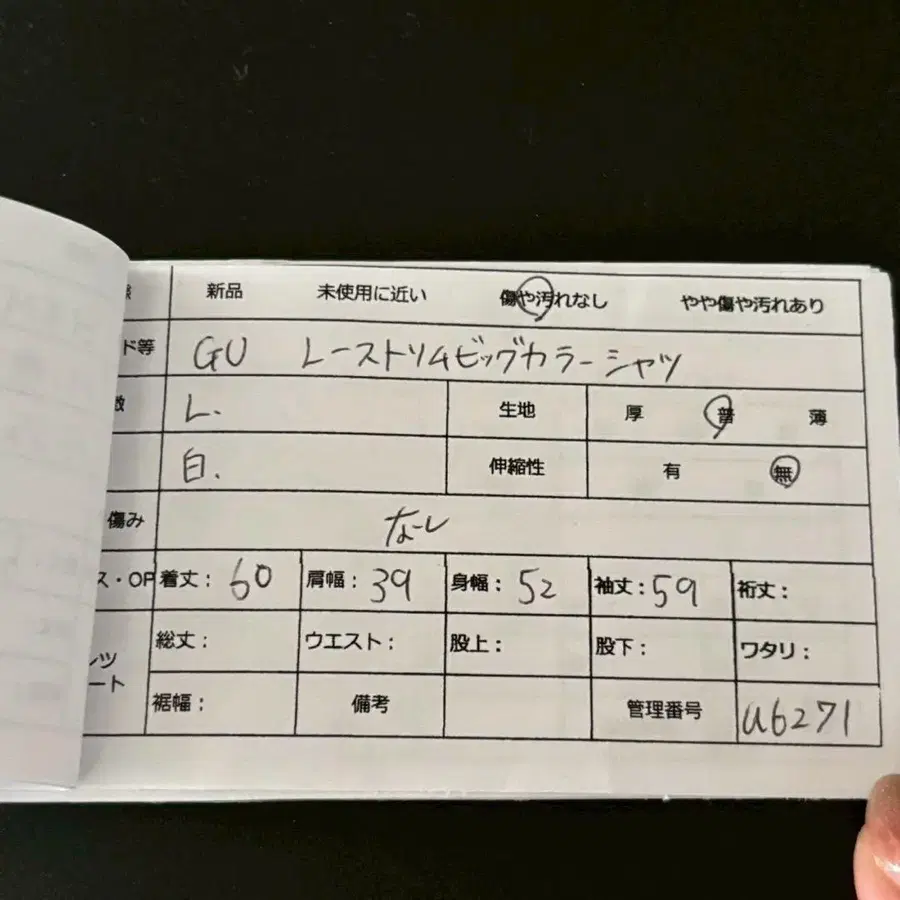 新品 未使用に近い 傷や汚れなし やや傷や汚れあり
ド等 GU レーストリムビッグカラーシャツ
数 L. 生地 厚 普 薄
白. 伸縮性 有 無
傷み なし
ス・OP 着丈: 60 肩幅: 39 身幅: 52 袖丈: 59 裄丈:
総丈: ウエスト: 股上: 股下: ワタリ:
ンツ
ート
裾幅: 備考 管理番号 u6271